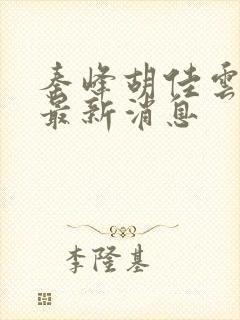 秦峰胡佳雲
最新消息
李隆基